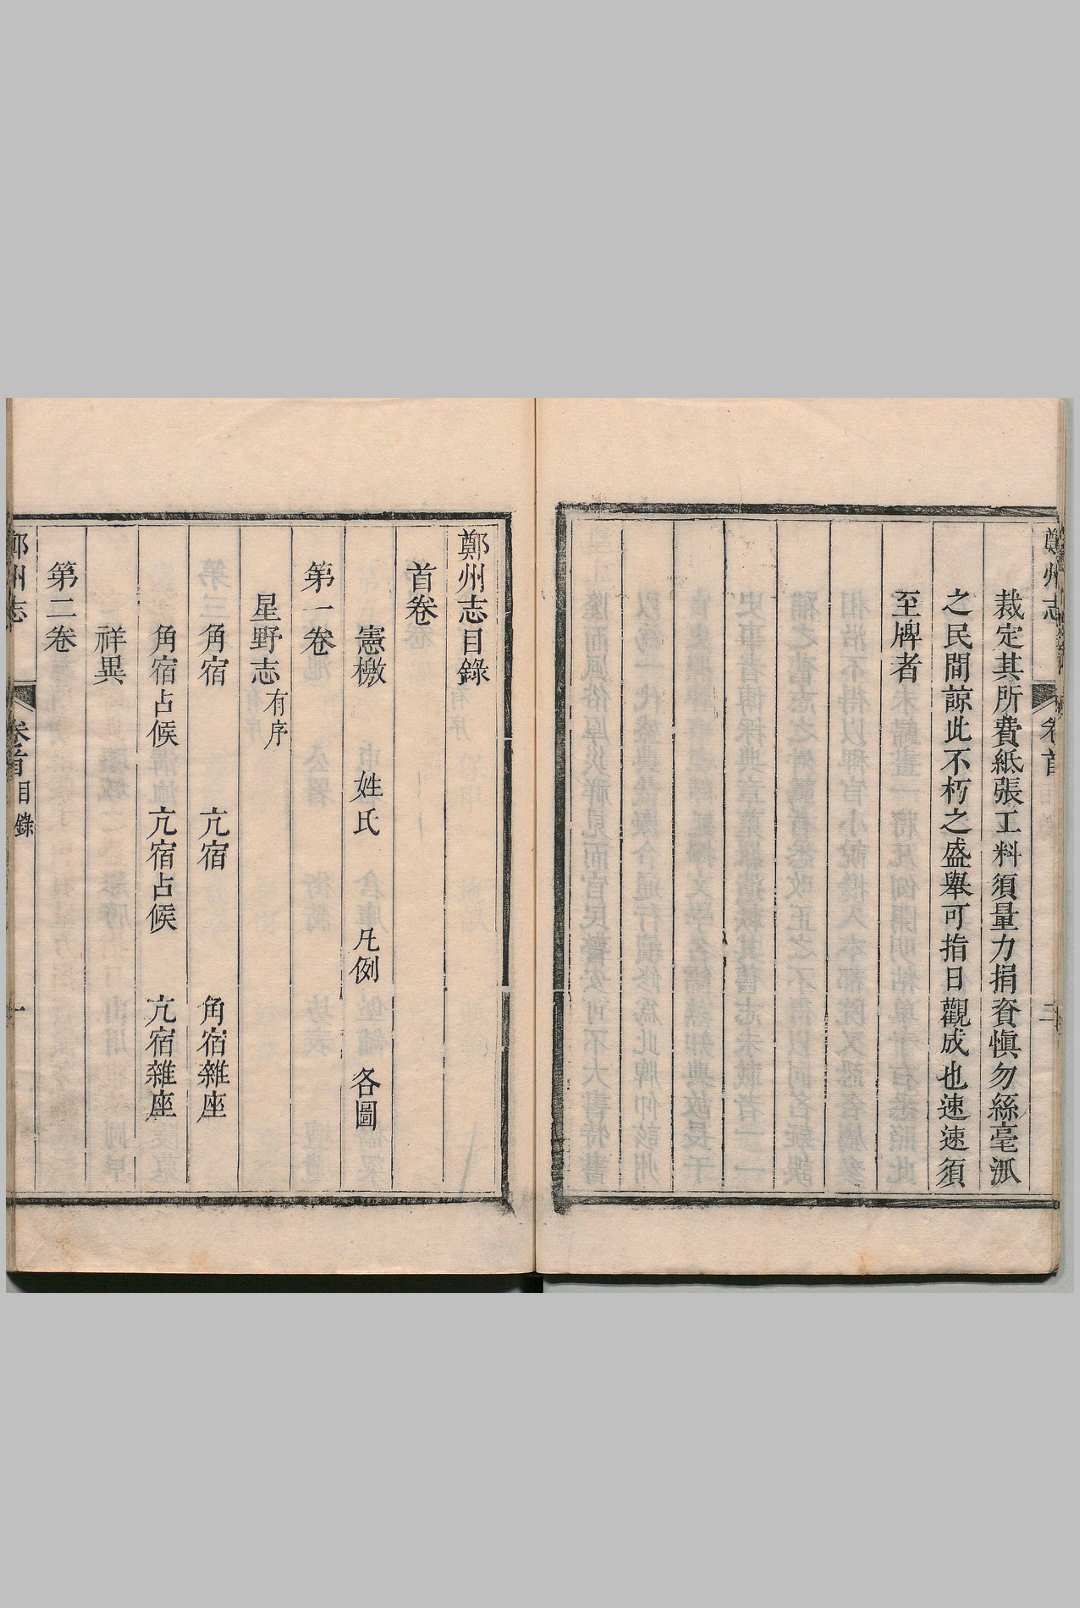 鄭州志 卷首 三
裁定其所費紙張工料須量力捐資愼勿絲毫派
之民間諒此不朽之盛舉可指日觀成也速速須
至牌者
鄭州志目錄
首卷
憲檄 姓氏 凡例 各圖
第一卷
星野志有序
角宿 亢宿 角宿雜座
角宿占候 亢宿占候 亢宿雜座
祥異
第二卷
鄭州志 卷首目錄 一